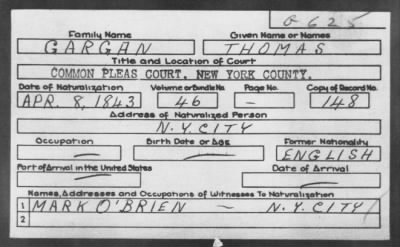 G 625
Family Name Given Name or Names
GARGAN THOMAS
Title and Location of Court
COMMON PLEAS COURT, NEW YORK COUNTY.
Date of Naturalization Volume or Bundle No. Page No. Copy of Record No.
APR. 8, 1843 46 — 148
Address of Naturalized Person
N.Y. CITY
Occupation Birth Date or Age Former Nationality
— — ENGLISH
Port of Arrival in the United States Date of Arrival
— —
Names, Addresses and Occupations of Witnesses To Naturalization
1 MARK O'BRIEN — N.Y. CITY
2